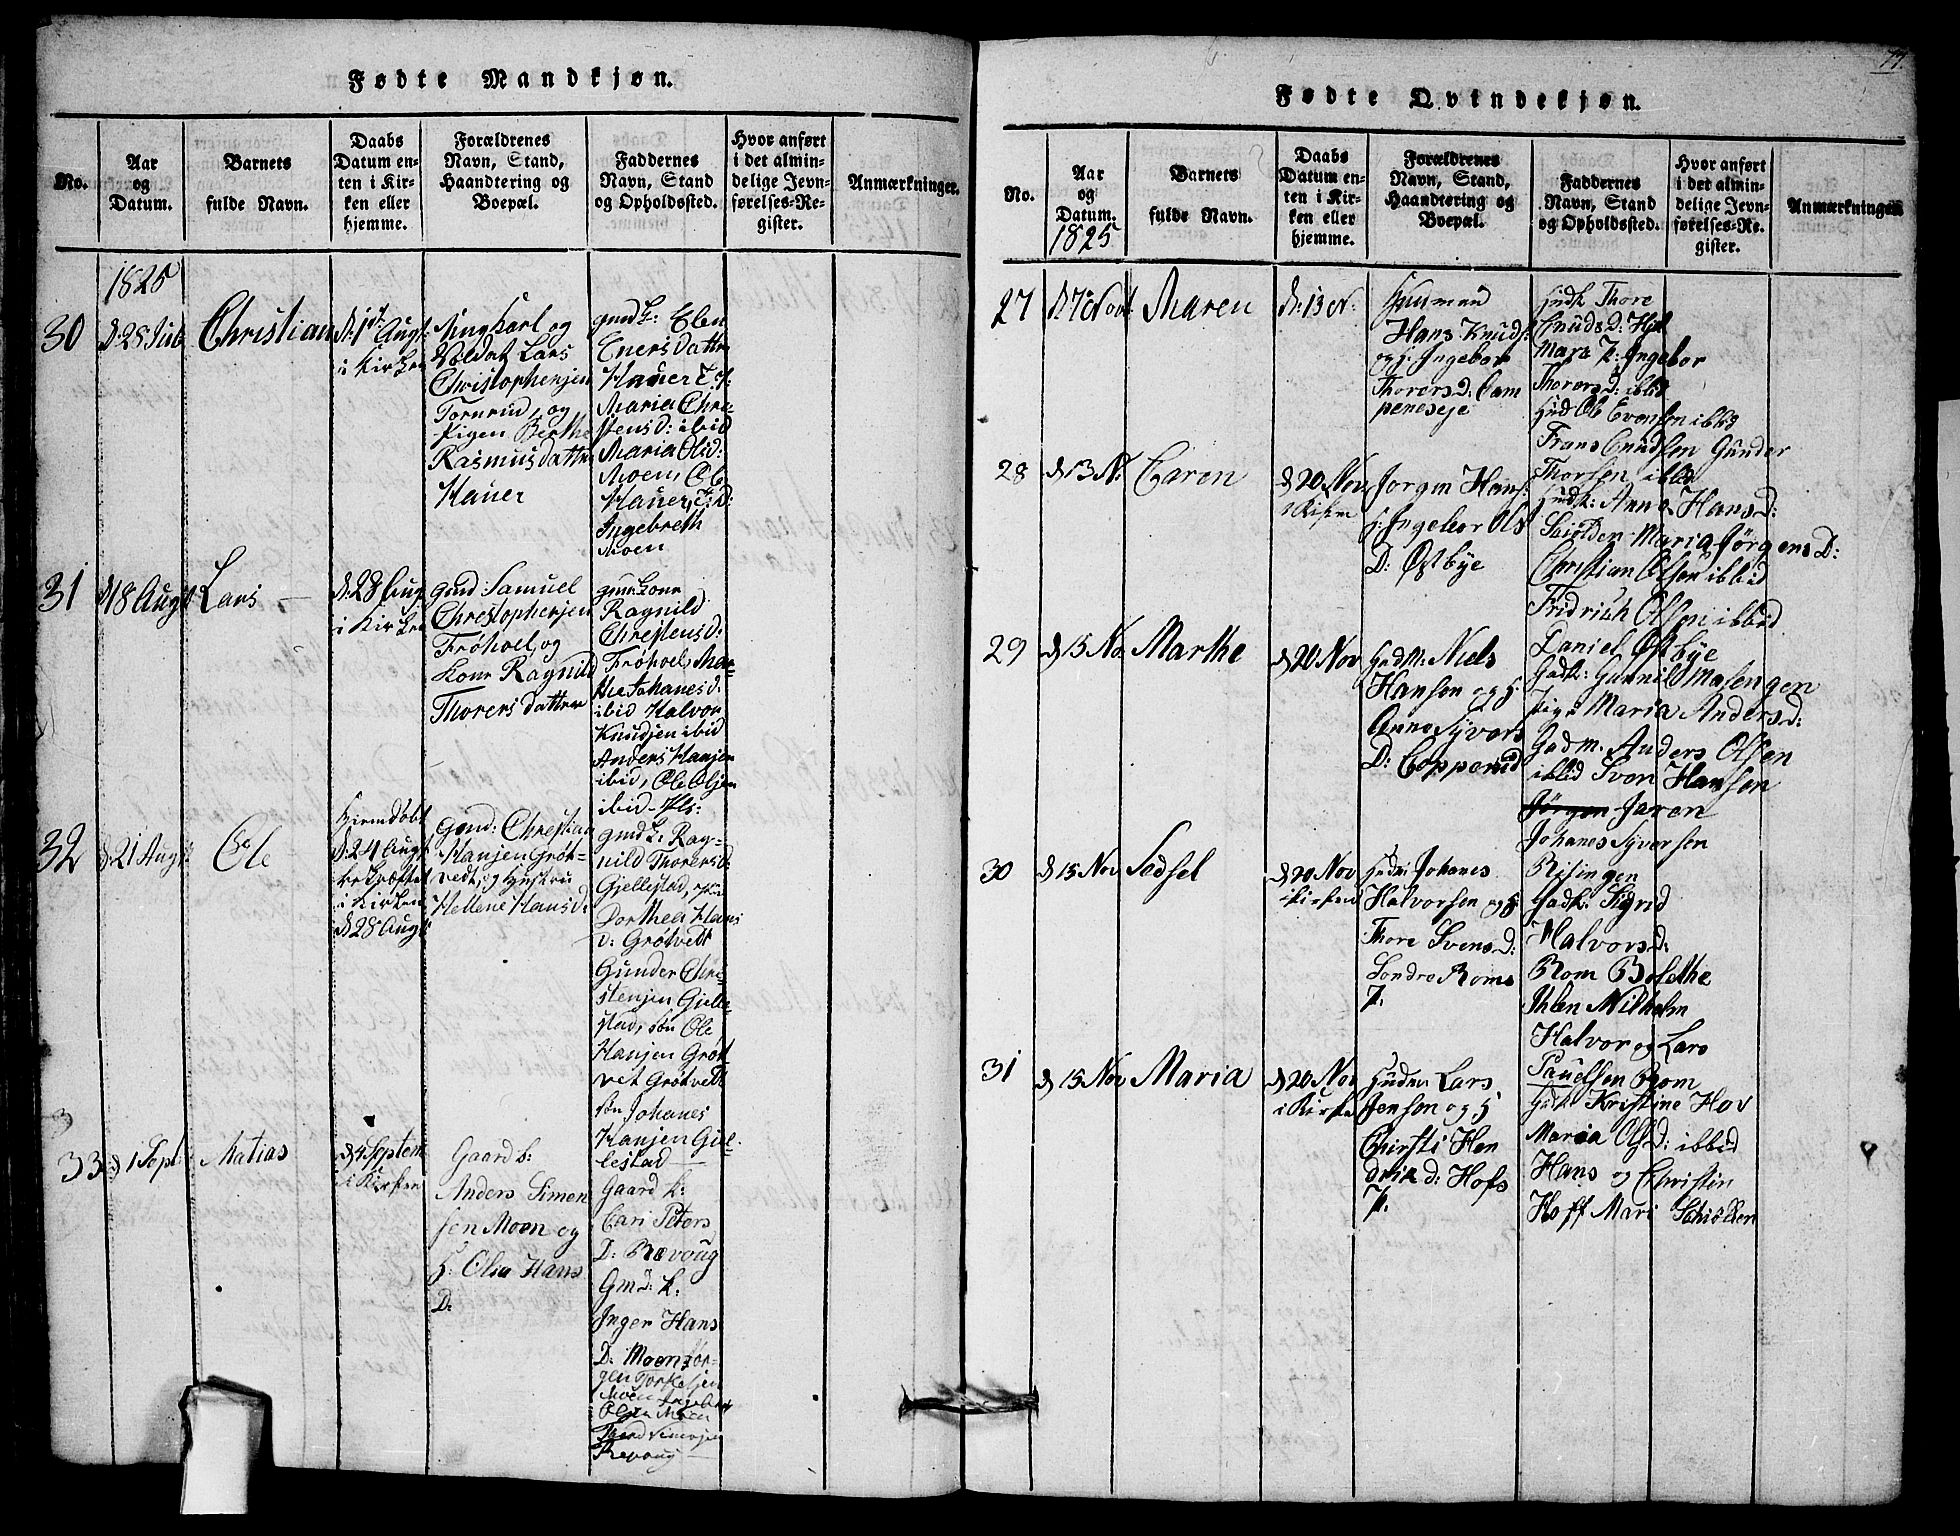 Fødte Mandkjøn.
No.
Aar
og
Datum.
Barnets
fulde Navn.
Daabs
Datum en-
ten i Kir-
ken eller
hjemme.
Forældrenes
Navn, Stand,
Haandtering og
Boepæl.
Faddernes
Navn, Stand
og Opholdssted.
Hvor anført
i det almin-
delige Jevn-
førelses-Re-
gister.
Anmærkninger.
1825
30
d: 28 Juli
Christian
d: 1ste Augt:
i Kirken
Ungkarl og
Soldat Lars
Christophersen
Tornrud, og
Pigen Berthe
Rasmusdatter
Hauer
gmdk: Elen
Enersdatter
Hauer
Maria Chri-
stensd: ibid
Maria Olsd:
Moen, Ole
Hauer,
Ingebreth
Moen
31
d 18 Augt
Lars
d: 28 Augt
i Kirken
gmd: Samuel
Christophersen
Frøhoel, og
Kone Ragnild
Thorersdatter
gmd: Kone
Ragnild
Christensd:
Frøhoel, Mar-
the Johanesd:
ibid Halvor
Knudsen ibid
Anders Hansen
ibid, Ole Olsen
ibid
32
d: 21 Augt:
Ole
Hjemdøbt
d: 24 Augt
bekræftet
i Kirken
d 28 Augt
Gmd: Christian
Hansen Grøt-
vedt, og Hustru
Hellene Hansd:
gmdk: Rag-
nild Thorersd:
Gjellestad,
Dorthea Hans
d: Grøtvedt
Gunder Chri-
stensen Gielle-
stad, søn Ole
Hansen Grøt-
vet Grøtvedt
søn Johanes
Hansen Giel-
lestad
33
d 1 Sept:
Matias
d 4 Septem
i Kirken
Gaardb:
Anders Simen
sen Moen og
H: Olea Hans
D:
Gaard k:
Cari Peters
D: Rævoug
Gmd: k:
Inger Hans
D: Moen, Jør-
gen Torkelsen
Moen
Olsen Moen
Simensen
Revoug
77.
Fødte Qvindekjøn.
No.
Aar
og
Datum.
1825
Barnets
fulde Navn.
Daabs
Datum en-
ten i Kir-
ken eller
hjemme.
Forældrenes
Navn, Stand,
Haandtering og
Boepæl.
Faddernes
Navn, Stand
og Opholdssted.
Hvor anført
i det almin-
delige Jevn-
førelses-Re-
gister.
Anmærkninger
27
d 7 Novt
Maren
d: 13 N.
Husmand
Hans Knuds:
og H: Ingebor
Thorersd: Cam
peneseje
Hudk Thore
Cnudsd:
Mari P: Ingebor
Thorersd: ibbid
Hud Ole Evensen ibbid
Frans Cnudsen Gunder
Thorsen ibbid
28
d 13 N:
Caren
d 20 Nov
i Kirken
Jorgen Hans:
H: Ingebor Ols
D: Østbye
Hudk: Anne Hansd:
Maria Jørgens D:
Christian Olsen ibbid
Fridrich Olsen ibbid
Daniel Østbye
29
d 15 Nov
Marthe
d 20 Nov
Gudm: Niels
Hansen og H:
Anne Syvers
D: Copperud
Gadk: Gunnil Masengen
Pige Maria Andersd:
Gadm. Anders Olsen
ibbid Sven Hansen
Jørgen Jaren
Johanes Syversen
Risingen
30
d 15 Nov
Sodsel
d 20 Nov
i Kirken
Johanes
Halvorsen og H
Thore Svensd:
Søndre Roms
P.
Gadk: Sigrid
Halvorsd:
Rom Bolethe
Ihlen Wilhelm
Halvor og Lars
Pauelsen Rom
31
d 15 Nov
Maria
d 20 Nov
i Kirken
Lars
Jensen og H
Chirsti Hen
drikd: Hofs
P.
Kristine Hov
Maria Olsd: ibbid
Hans og Christin
Hoff Mari Schiølden